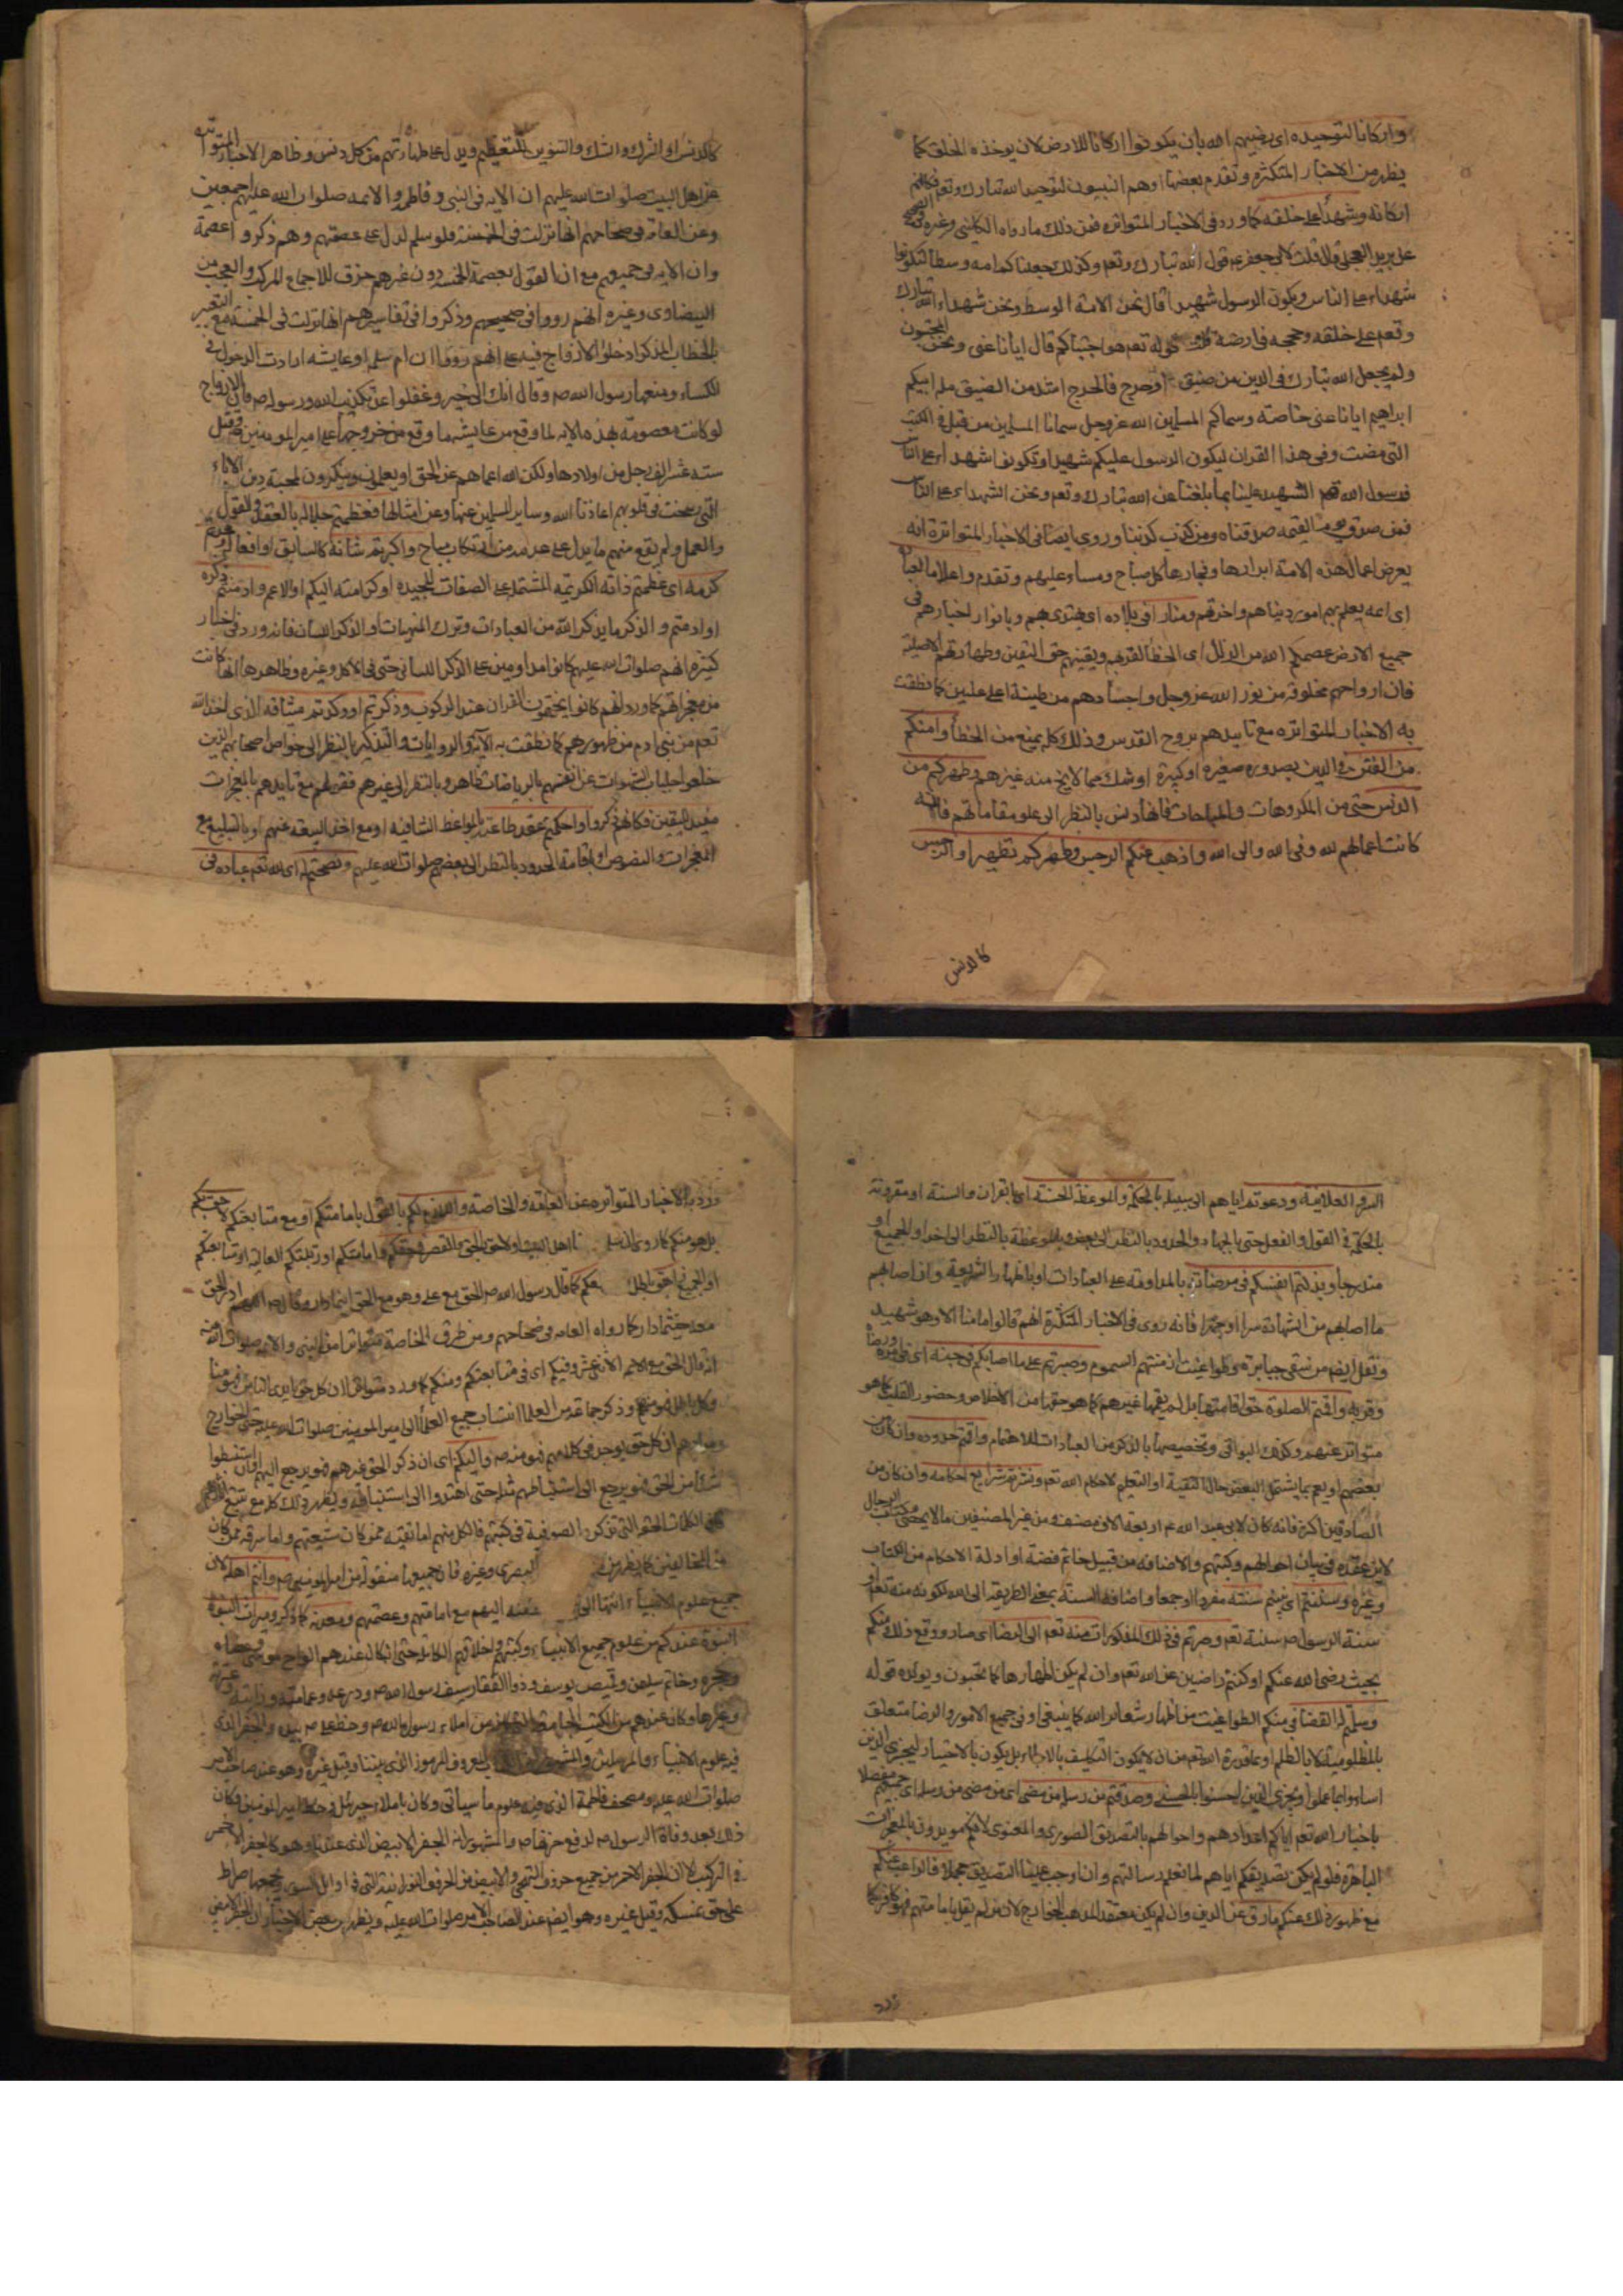 واركانا لتوحيده اى رضيهم الله بان يكونوا اركانا للارض لان يوخذه الخلق كما
يظهر من الاخبار المتكثرة وتقدم بعضها اوهم النبيون لتوحيد الله تبارك وتعم فكانهم
اركانه وشهداء على خلقه كما ورد فى الاخبار المتواتره فمن ذلك ما رواه الكلينى وغيره فى الصحيح
عن بريد العجلى قال قلت لابى جعفر ع قول الله تبارك وتعم وكذلك جعلناكم امه وسطا لتكونوا
شهداء على الناس ويكون الرسول شهيدا قال نحن الامة الوسط ونحن شهداء الله تبارك
وتعم على خلقه وحججه فى ارضه قلت قوله تعم هو اجتباكم قال ايانا عنى ونحن المجتبون
ولم يجعل الله تبارك فى الدين من ضيق او حرج فالحرج اشد من الضيق ملة ابيكم
ابراهيم ايانا عنى خاصة وسماكم المسلمين الله عز وجل سمانا المسلمين من قبل فى الكتب
التى مضت وفى هذا القران ليكون الرسول عليكم شهيدا وتكونوا شهداء على الناس
فرسول الله الشهيد علينا بما بلغنا عن الله تبارك وتعم ونحن الشهداء على الناس
فمن صدق يوم القيمه صدقناه ومن كذب كذبناه وروى ايضا فى الاخبار المتواترة انه
يعرض اعمال هذه الامة ابرارها وفجارها كل صباح ومساء عليهم وتقدم واعلاما لعباده
اى ائمه يعلم بهم امور دنياهم واخرتهم ومنارا فى بلاده اى يهتدى بهم وبانوار اخبارهم فى
جميع الارض عصمكم الله من الزلل اى الخطا لقربهم ويقينهم حق اليقين وطهارتهم الاصلية
فان ارواحهم مخلوقة من نور الله عز وجل واجسادهم من طينة اعلى عليين كما نطقت
به الاخبار المتواتره مع تاييدهم بروح القدس وذلك كله يمنع من الخطأ وامنكم
من الفتن فى الدين بصدور صغيره او كبيرة او شك مما لا يخ منه غيرهم وطهركم من
الدنس حتى من المكروهات والمباحات فانها دنس بالنظر الى علو مقاماتهم فانه
كانت اعمالهم لله وفى الله والى الله واذهب عنكم الرجس وطهركم تطهيرا او الرجس
كالدنس
كالدنس او الشرك والشك والتنوين للتعظيم ويدل على طهارتهم من كل دنس وظاهر الاخبار المتواتره
عن اهل البيت صلوات الله عليهم ان الايه فى النبى وفاطمه والائمه صلوات الله عليهم اجمعين
وعن العامه فى صحاحهم انها نزلت فى الخمسه فلو سلم لدل على عصمتهم وهم ذكروا عصمة
وان الايه فى جميعهم مع ان القول بعصمة الخمسه دون غيرهم خرق للاجماع المركب والعجب من
البيضاوى وغيره انهم رووا فى صحيحهم وذكروا فى تفاسيرهم انها نزلت فى الخمسه مع التعبير
بالخطاب المذكر ادخلوا الازواج فيه على انهم رووا ان ام سلمه او عايشه ارادت الدخول فى
الكساء ومنعها رسول الله ص وقال انك الى خير وغفلوا عن تكذيب الله ورسوله ص فان الازواج
لو كانت معصومة بهذه الايه لما وقع من عايشه ما وقع من خروجها على امير المومنين وقتل
سته عشر الف رجل من اولادها ولكن الله اعماهم عن الحق او يعلمون وينكرون لمحبة دين الاباء
التى رسخت فى قلوبهم اعاذنا الله وساير المسلمين عنها وعن امثالها فعظمتم جلاله بالعقد والقول
والعمل ولم يقع منهم ما يدل على عدمه من ارتكاب مباح واكبرتم شانه كالسابق او افعاله
كرمه اى عظمتم ذاته الكريمه المشتمله على الصفات المجيده او كرامته اليكم او الاعم وادمنتم ذكره
او ادمتم والذكر ما يذكر الله من العبادات وترك المنهيات او الذكر اللسان فانه ورد فى اخبار
كثيره انهم صلوات الله عليهم كانوا مداومين على الذكر اللسانى حتى فى الاكل وغيره وظاهرها انها كانت
من معجزاتهم كما ورد انهم كانوا يختمون القران عند الركوب وذكرتم او وكدتم ميثاقه الذى اخذ الله
تعم من بنى ادم من ظهورهم كما نطقت به الاية والروايات والتذكير بالنظر الى خواص اصحابهم الذين
خلعوا جلباب الشهوات عن انفسهم بالرياضات ظاهر وبالنظر الى غيرهم فقولهم مع تاييدهم بالمعجزات
مفيد لليقين فكانهم ذكروا واحكمتم عقد طاعته بالمواعظ الشافيه او مع اخذ البيعه عنهم او بالتبليغ مع
المعجزات والنصوص او اقامة الحدود بالنظر الى بعضهم صلوات الله عليهم ونصحتم له اى لله تعم عباده فى
السر والعلانية ودعوتم اياهم الى سبيله بالحكمة والموعظة الحسنة اى بالقران والسنة او مقرونة
بالحكمة فى القول والفعل حتى بالجهاد والحدود بالنظر الى بعض وبالموعظة بالنظر الى اخر او للجميع او
مندرجا وبذلتم انفسكم فى مرضاته بالمداومة على العبادات او باظهار الشريعة وان اصابهم
ما اصابهم من الشهادة سرا او جهرا فانه روى فى الاخبار المتكثرة انهم قالوا ما منا الا وهو شهيد
ونقل ايضا من شقى جبابرة وطواغيت ازمنتهم السموم وصبرتم على ما اصابكم فى جنبه اى فى امره ورضاه
وقربه واقمتم الصلوة حق اقامتها بل لم يقمها غيرهم كما هو حقها من الاخلاص وحضور القلب كما هو
متواتر عنهم وكذلك البواقى وتخصيصها بالذكر من العبادات للاهتمام واقمتم حدوده وان كان من
بعضهم او يعم بما يشتمل البعض حال التقية او التعليم لاحكام الله تعم ونشرتم شرايع احكامه وان كان من
الصادقين اكثر فانه كان لابى عبد الله ع اربعة الاف مصنف ومن غير المصنفين ما لا يحصى وكتاب الرجال
لابن عقده فى بيان احوالهم وكتبهم والاضافه من قبيل خاتم فضة او ادلة الاحكام من الكتاب
وغيره وسننتم اى بينتم سنته مفردا او جمعا واضافة السنة بمعنى الطريقه الى الله لكونه منه تعم او
سنة الرسول ص سنة تعم وصرتم فى ذلك المذكورات منه تعم الى الرضا اى صار ووقع ذلك منكم
بحيث رضى الله عنكم او كنتم راضين عن الله تعم وان لم يكن اظهارها كما تحبون ويولده قوله
وسلمتم له القضا فى منكم الطواغيت من اظهار شعائر الله كما ينبغى او فى جميع الامور والرضا متعلق
بالمظلومية لا بالظلم او بما قدره الله تعم من ان لا يكون التكليف بالالجاء بل يكون بالاختيار ليجزى الذين
اساءوا بما عملوا ويجزى الذين احسنوا بالحسنى وصدقتم من رسله من مضى اى من مضى من رسله اى جميعهم مفصلا
باخبار الله تعم اياكم اعدادهم واحوالهم بالتصديق الصورى والمعنوى لانكم مويدون بالمعجزات
الباهره فلو لم يكن تصديقكم اياهم لما نعلم رسالتهم وان اوجب علينا التصديق مجملا فالراغب عنكم
مع ظهور ذلك عنكم مارق عن الدين وان لم يكن معتقد المذهب الخوارج لان من لم يقل بامامتهم فهو كافر كما
ورد
ورد به الاخبار المتواتره عن العامه والخاصه واللازم لكم بالقول بامامتكم او مع متابعتكم لاحق بكم
بل هو منكم كما روى سلمان منا اهل البيت او لاحق الحق والمقصر فى حقكم وامامتكم او رتبتكم العالية او متابعتكم
او الجميع زاهق باطل والحق معكم كما قال رسول الله ص الحق مع على وهو مع الحق اينما دار وقال ص اللهم ادر الحق
معه حيثما دار كما رواه العامه فى صحاحهم ومن طرق الخاصة متواترا من النبى والائمه صلوات الله عليهم
انه قال الحق مع الائمه الاثنى عشر وفيكم اى فى متابعتكم ومنكم كما ورد متواترا ان كل حق بايدى الناس فهو منا
وكل باطل فهو منهم وذكر جماعة من العلما انتساب جميع العلماء الى امير المومنين صلوات الله عليه حتى الخوارج
ومرادهم ان كل حق يوجد فى كلامهم فهو منه ص واليكم اى ان ذكر الحق غيرهم فهو يرجع اليهم وان استنبطوا
شيئا من الحق فهو يرجع الى استنباطهم مثله حتى اهتدوا الى استنباطه ويظهر ذلك كله مع تتبع اثارهم
كالكلمات الحقه التى تذكرها الصوفية فى كتبهم فالكل منهم اما تقيه ممن كان شيعتهم واما سرقه ممن كان
من المخالفين كما يظهر من البصرى وغيره فان جميعها منقوله من امير المومنين ص وانتم اهله لان
جميع علوم الانبياء انتهى اليهم مع امامتهم وعصمتهم ومعدنه كما ذكر وميراث النبوة
النبوة عندكم من علوم جميع الانبياء وكتبهم واخلاقهم الكاملة حتى انه كان عندهم الواح موسى وعصاه
وحجره وخاتم سليمن وقميص يوسف وذو الفقار سيف رسول الله ص ودرعه وعمامته ورايته وعنزته
وغيرها وكان عندهم من الكتب الجامعة من املاء رسول الله ص وخط على ص بيده والجفر الذى
فيه علوم الانبياء والمرسلين والمشهور المعروف الرموز الذى بيننا وقيل غيره وهو عند صاحب الامر
صلوات الله عليه ومصحف فاطمة الذى فيه علوم ما سيأتى وكان باملاء جبرئيل وخط امير المومنين فكان
ذلك بعد وفاة الرسول ص لدفع حزنها ص والمشهور ان الجفر الابيض الذى عندنا وهو كالجفر الاحمر
فى التركيب الا ان الجفر الاحمر من جميع حروف التهجى والابيض من الحروف النورانية التى فى اوائل السور يجمعها صراط
على حق نمسكه وقيل غيره وهو ايضا عند الصاحب الامر صلوات الله عليه ويظهر من بعض الاخبار ان الجفر الابيض